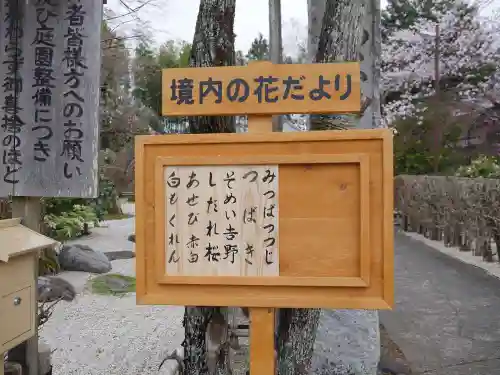 境内の花だより
みつばつつじ
つばき
そめい吉野
しだれ桜
あせび 赤白
白もくれん
者皆様方へのお願
及び庭園整備につき